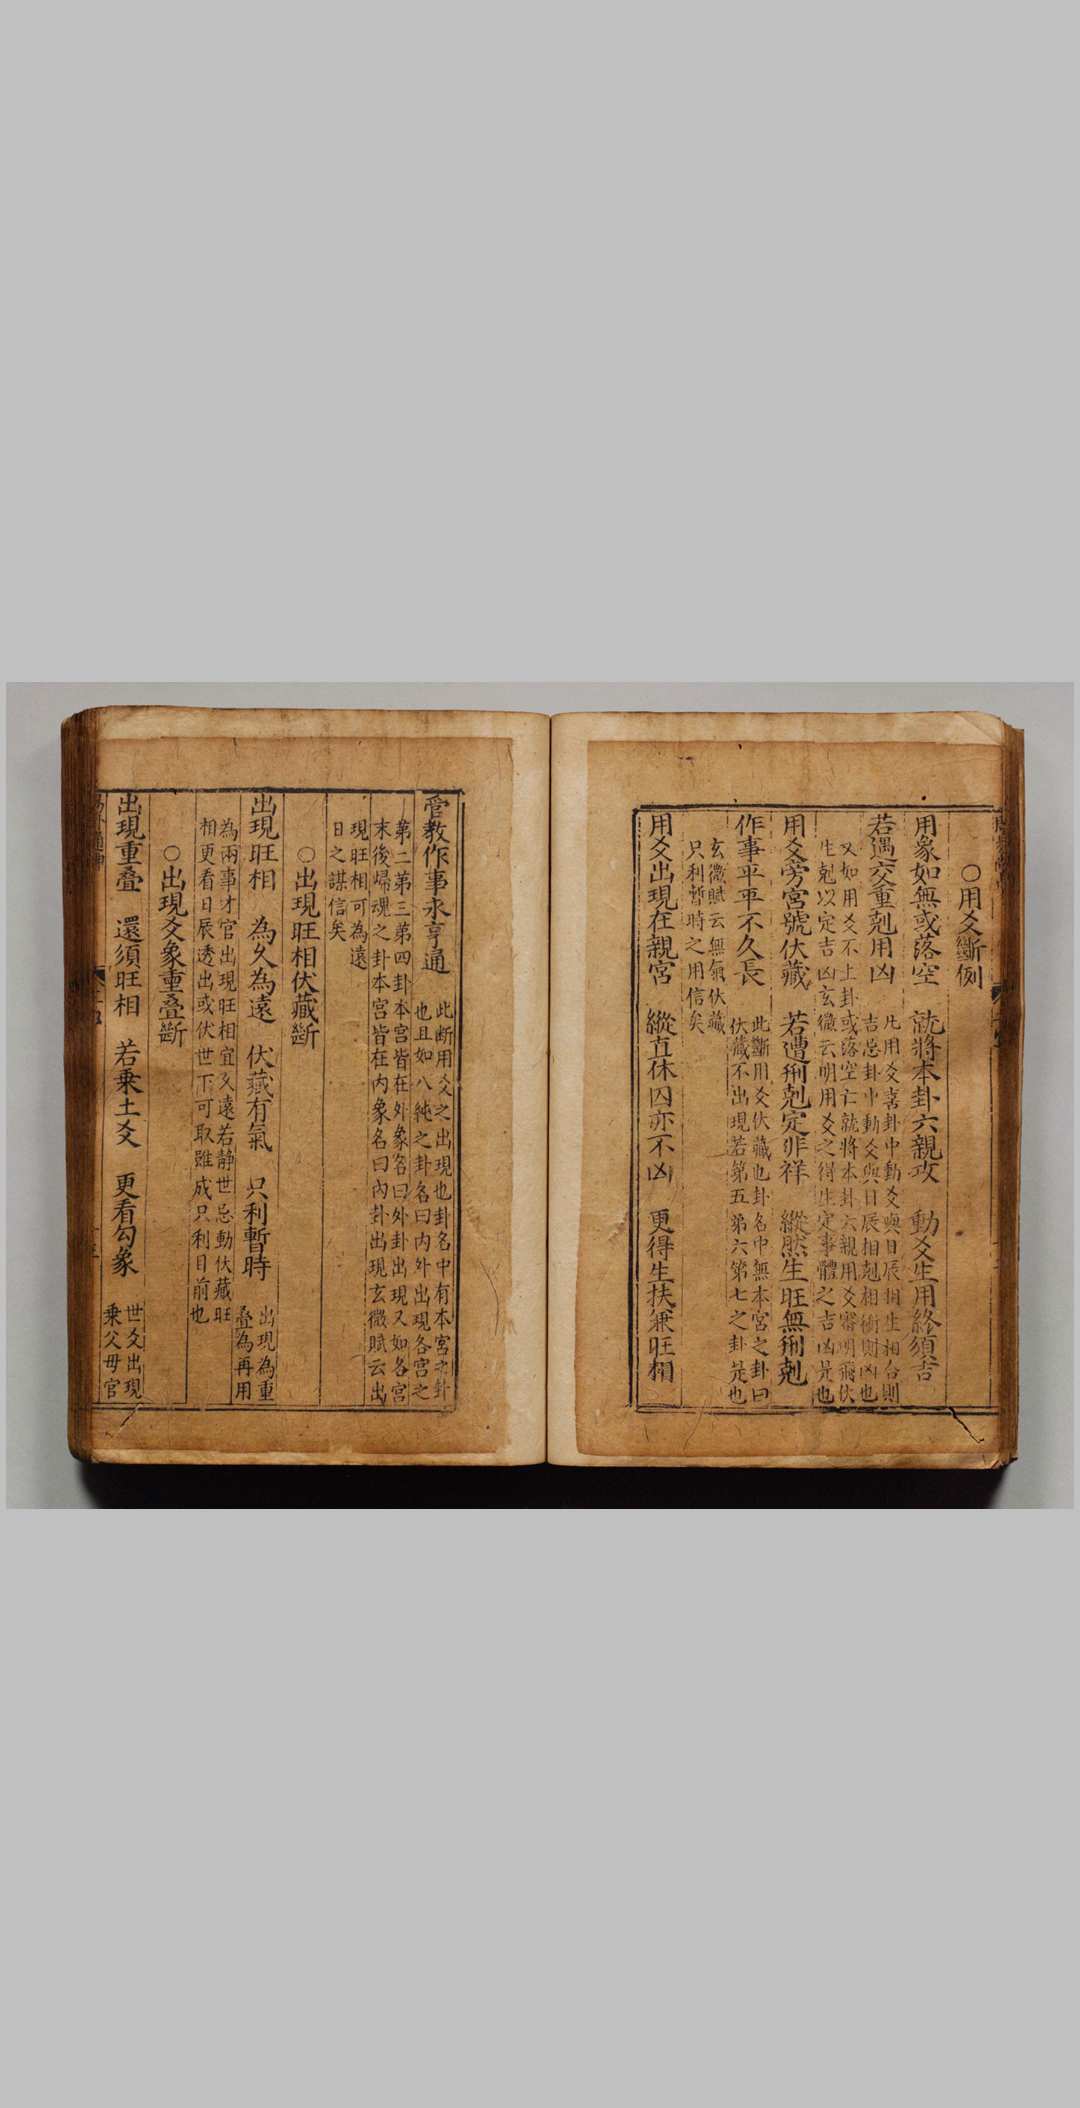 ○用爻斷例
用象如無或落空　就將本卦六親攻　動爻生用終須吉
若遇交重剋用凶
凡用爻喜卦中動爻與日辰相生相合則
吉忌卦中動爻與日辰相剋相衝則凶也
又如用爻不上卦或落空亡就將本卦六親用爻審明飛伏
生剋以定吉凶玄微云明用爻之得生定事體之吉凶是也
用爻旁宮號伏藏　若遭刑剋定非祥　縱然生旺無刑剋
作事平平不久長
此斷用爻伏藏也卦名中無本宮之卦曰
伏藏不出現若第五第六第七之卦是也
玄微賦云無氣伏藏
只利暫時之用信矣
用爻出現在親宮　縱直休囚亦不凶　更得生扶兼旺相
管教作事永亨通
此断用爻之出現也卦名中有本宮之卦
也且如八純之卦名曰內外出現各宮之
第二第三第四卦本宮皆在外象名曰外卦出現又如各宮
末後歸魂之卦本宮皆在內象名曰內卦出現玄微賦云出
現旺相可為遠
日之謀信矣
○出現旺相伏藏斷
出現旺相　為久為遠　伏藏有氣　只利暫時
出現為重
疊為再用
為兩事才官出現旺相宜久遠若靜世忌動伏藏旺
相更看日辰透出或伏世下可取雖成只利目前也
○出現爻象重疊斷
出現重疊　還須旺相　若乘土爻　更看勾象
世爻出現
乘父母官